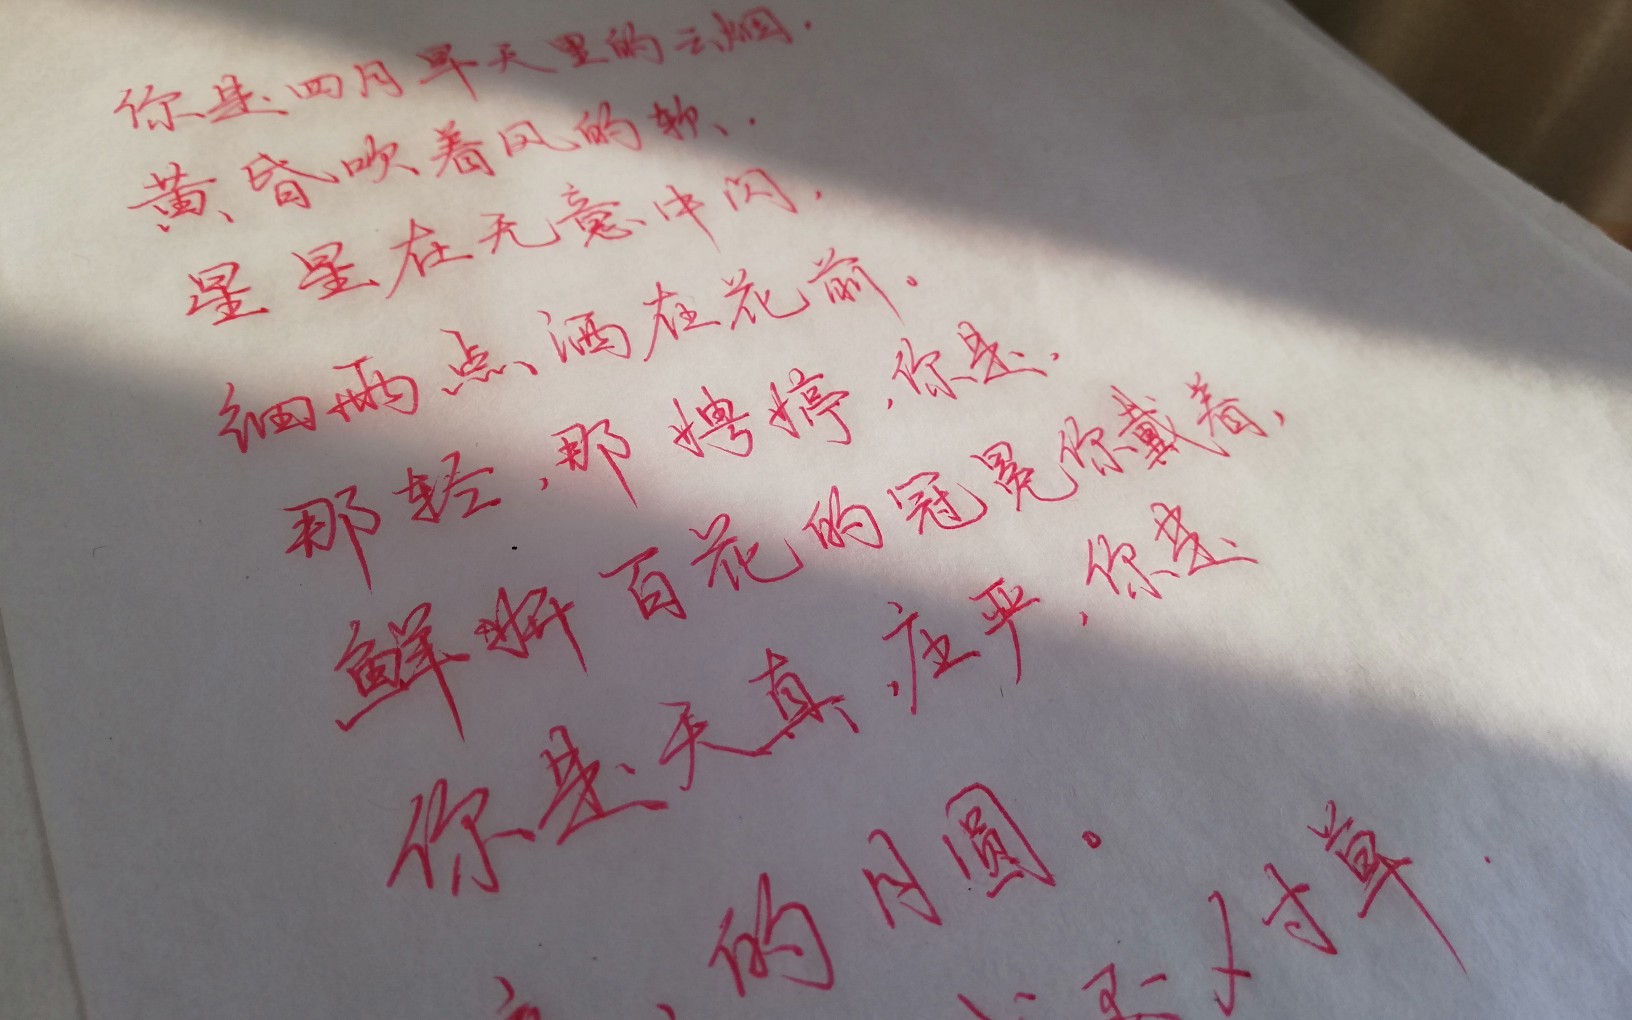 你是四月早天里的云烟.
黄昏吹着风的软.
星星在无意中闪,
细雨点洒在花前。
那轻,那娉婷,你是.
鲜妍百花的冠冕你戴着,
你是天真,庄严,你是
的月圆。